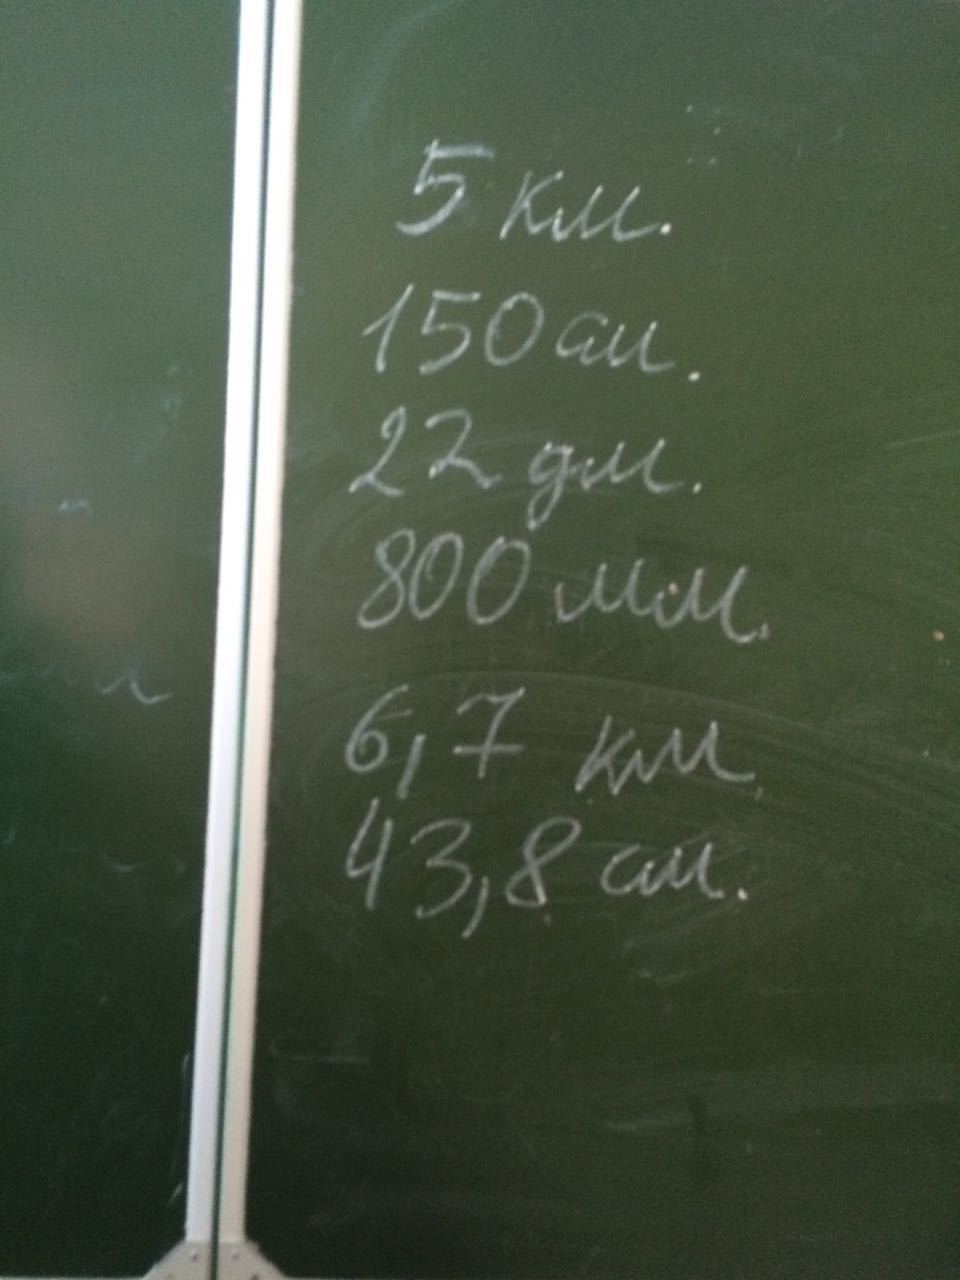 5 км.
150 см.
22 дм.
800 мм.
6,7 км
43,8 см.